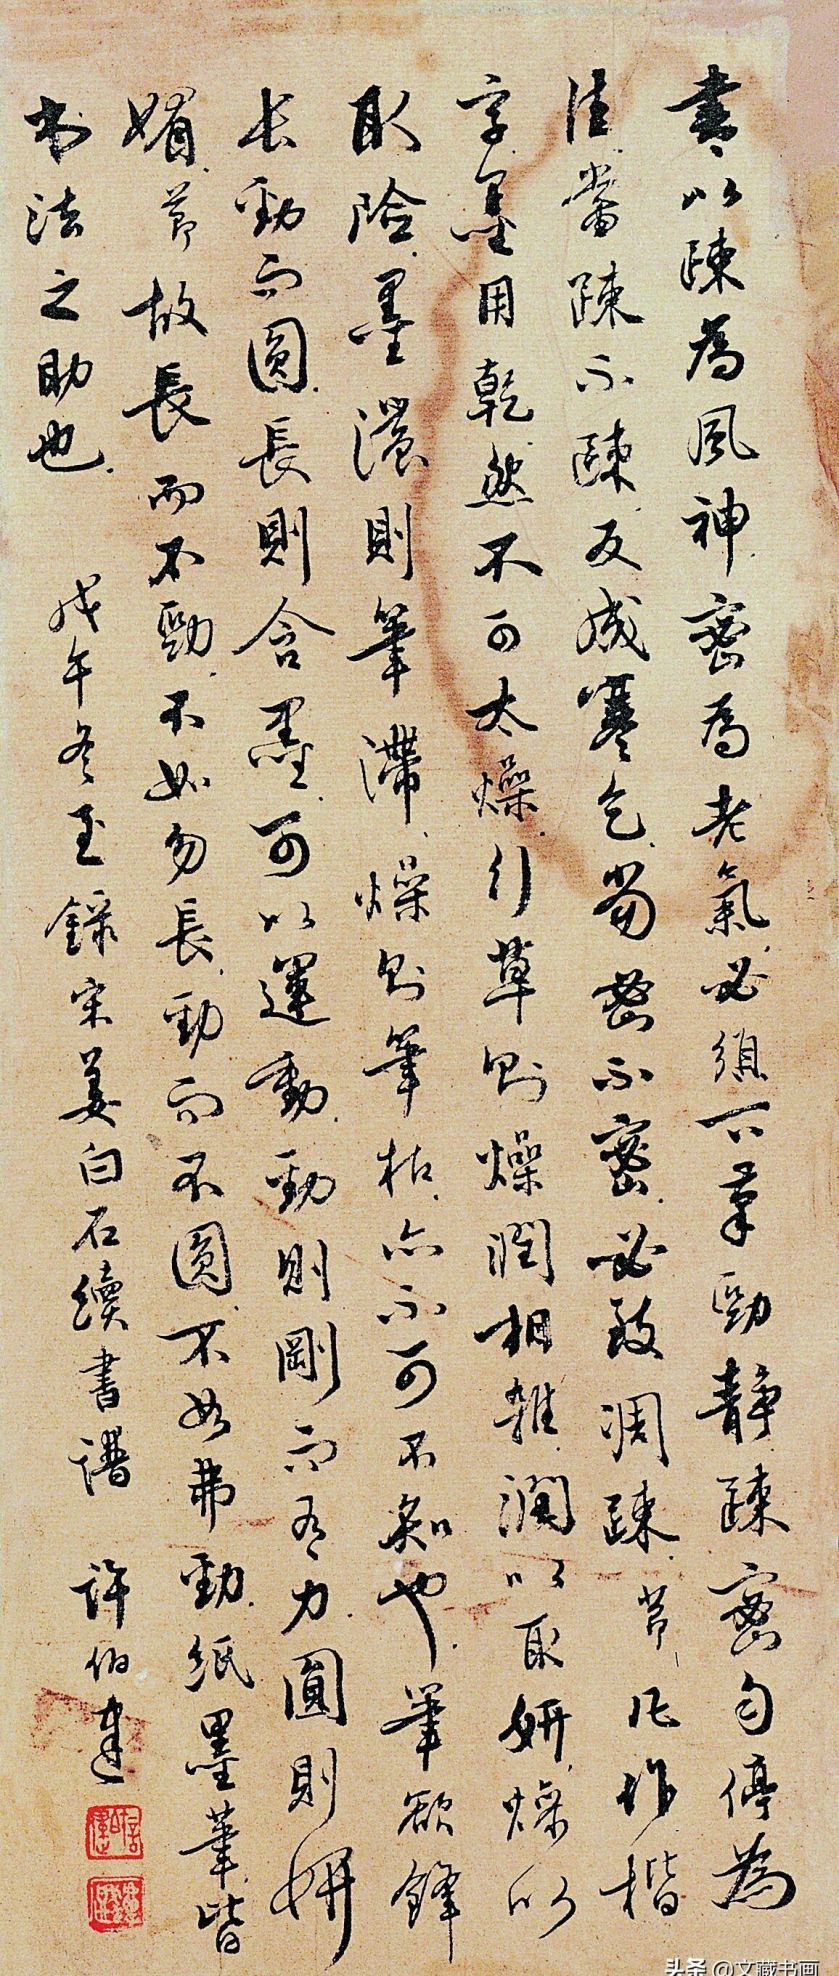 書以疎為風神密為老氣必須下筆勁靜疎密勻停為
佳當疎不疎反成寒乞當密不密必致凋疎節凡作楷
字墨用乾然不可太燥行草則燥潤相雜潤以取妍燥以
取險墨濃則筆滯燥則筆枯亦不可不知也筆欲鋒
长勁而圓長則含墨可以運動勁則剛而有力圓則妍
媚節故長而不勁不如勿長勁而不圓不如弗勁紙墨筆皆
书法之助也 戊午冬至錄宋姜白石續書譜 許伯建
头条 @文藏书画